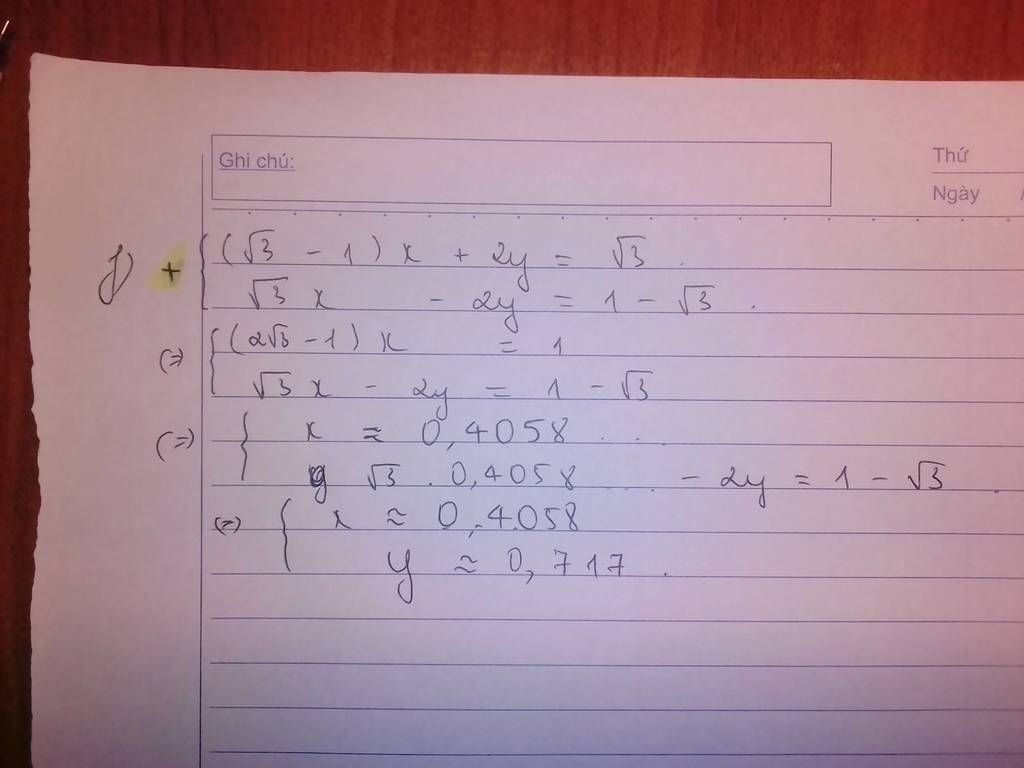 Ghi chú:
Thứ
Ngày
f) + { (√3 - 1) x + 2y = √3 .
√3 x - 2y = 1 - √3 .
(=) { (2√3 - 1) x = 1
√3 x - 2y = 1 - √3
(=) { x ≈ 0,4058 . . .
y √3 . 0,4058 .... - 2y = 1 - √3 .
(=) { x ≈ 0,4058
y ≈ 0,717 .